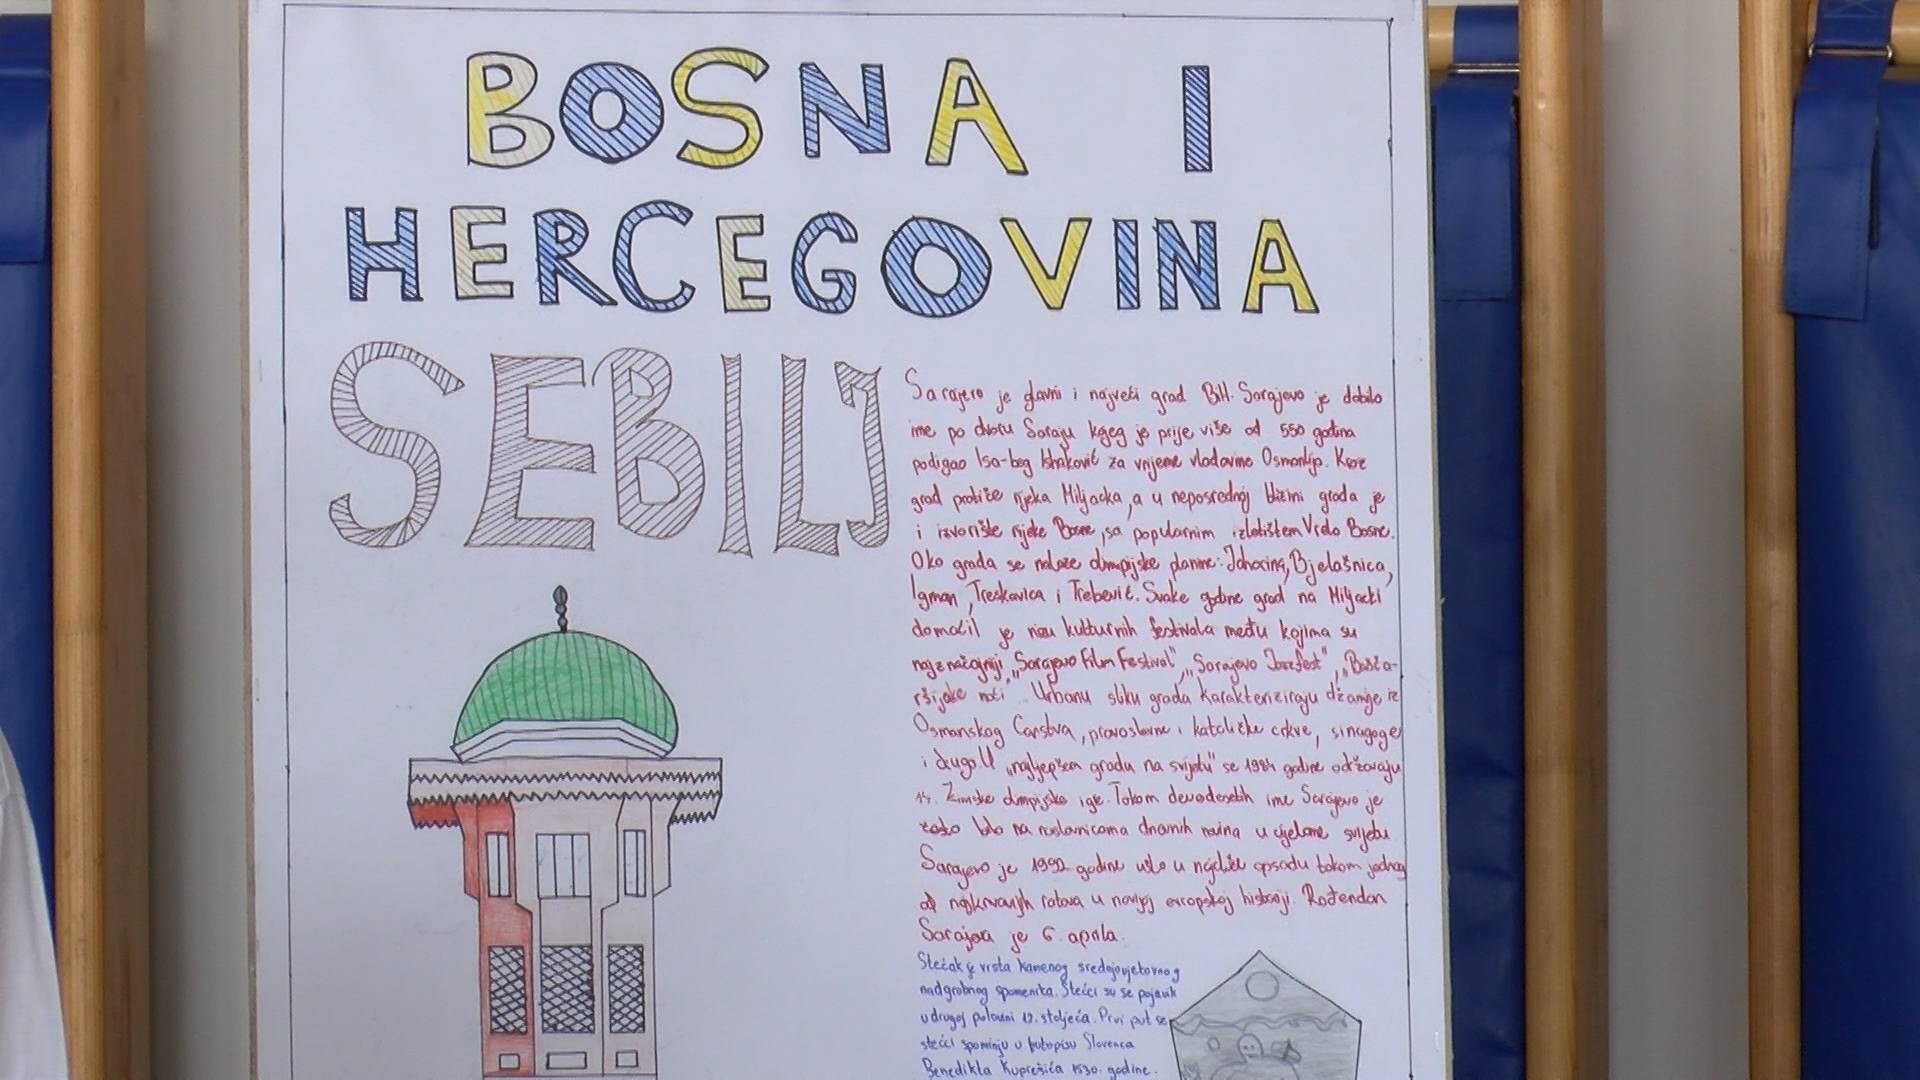 BOSNA I
HERCEGOVINA
SEBILJ
Sarajevo je glavni i najveći grad BiH. Sarajevo je dobilo
ime po dvoru Saraju kojeg je prije više od 550 godina
podigao Isa-beg Ishaković za vrijeme vladavine Osmanlija. Kroz
grad protiče rijeka Miljacka, a u neposrednoj blizini grada je
i izvorište rijeke Bosne, sa popularnim izletištem Vrelo Bosne.
Oko grada se nalaze olimpijske planine: Jahorina, Bjelašnica,
Igman, Treskavica i Trebević. Svake godine grad na Miljacki
domaćil je nizu kulturnih festivala među kojima su
najznačajniji „Sarajevo Film Festival", „Sarajevo Jazzfest", „Bašča-
ršijske noći". Urbanu sliku grada karakteriziraju džamije iz
Osmanskog Carstva, pravoslavne i katoličke crkve, sinagoge
i drugo. U „najljepšem gradu na svijetu" se 1984 godine održavaju
14. Zimske olimpijske igre. Tokom devedesetih ime Sarajevo je
često bilo na naslovnicama dnevnih novina u cijelome svijetu.
Sarajevo je 1992 godine ušlo u najdužu opsadu tokom jednog
od najkrvavijih ratova u novijoj evropskoj historiji. Rođendan
Sarajeva je 6. aprila.
Stećak je vrsta kamenog srednjovjekovnog
nadgrobnog spomenika. Stećci su se pojavili
u drugoj polovini 12. stoljeća. Prvi put se
stećci spominju u putopisu Slovenca
Benedikta Kuprešića 1530. godine.